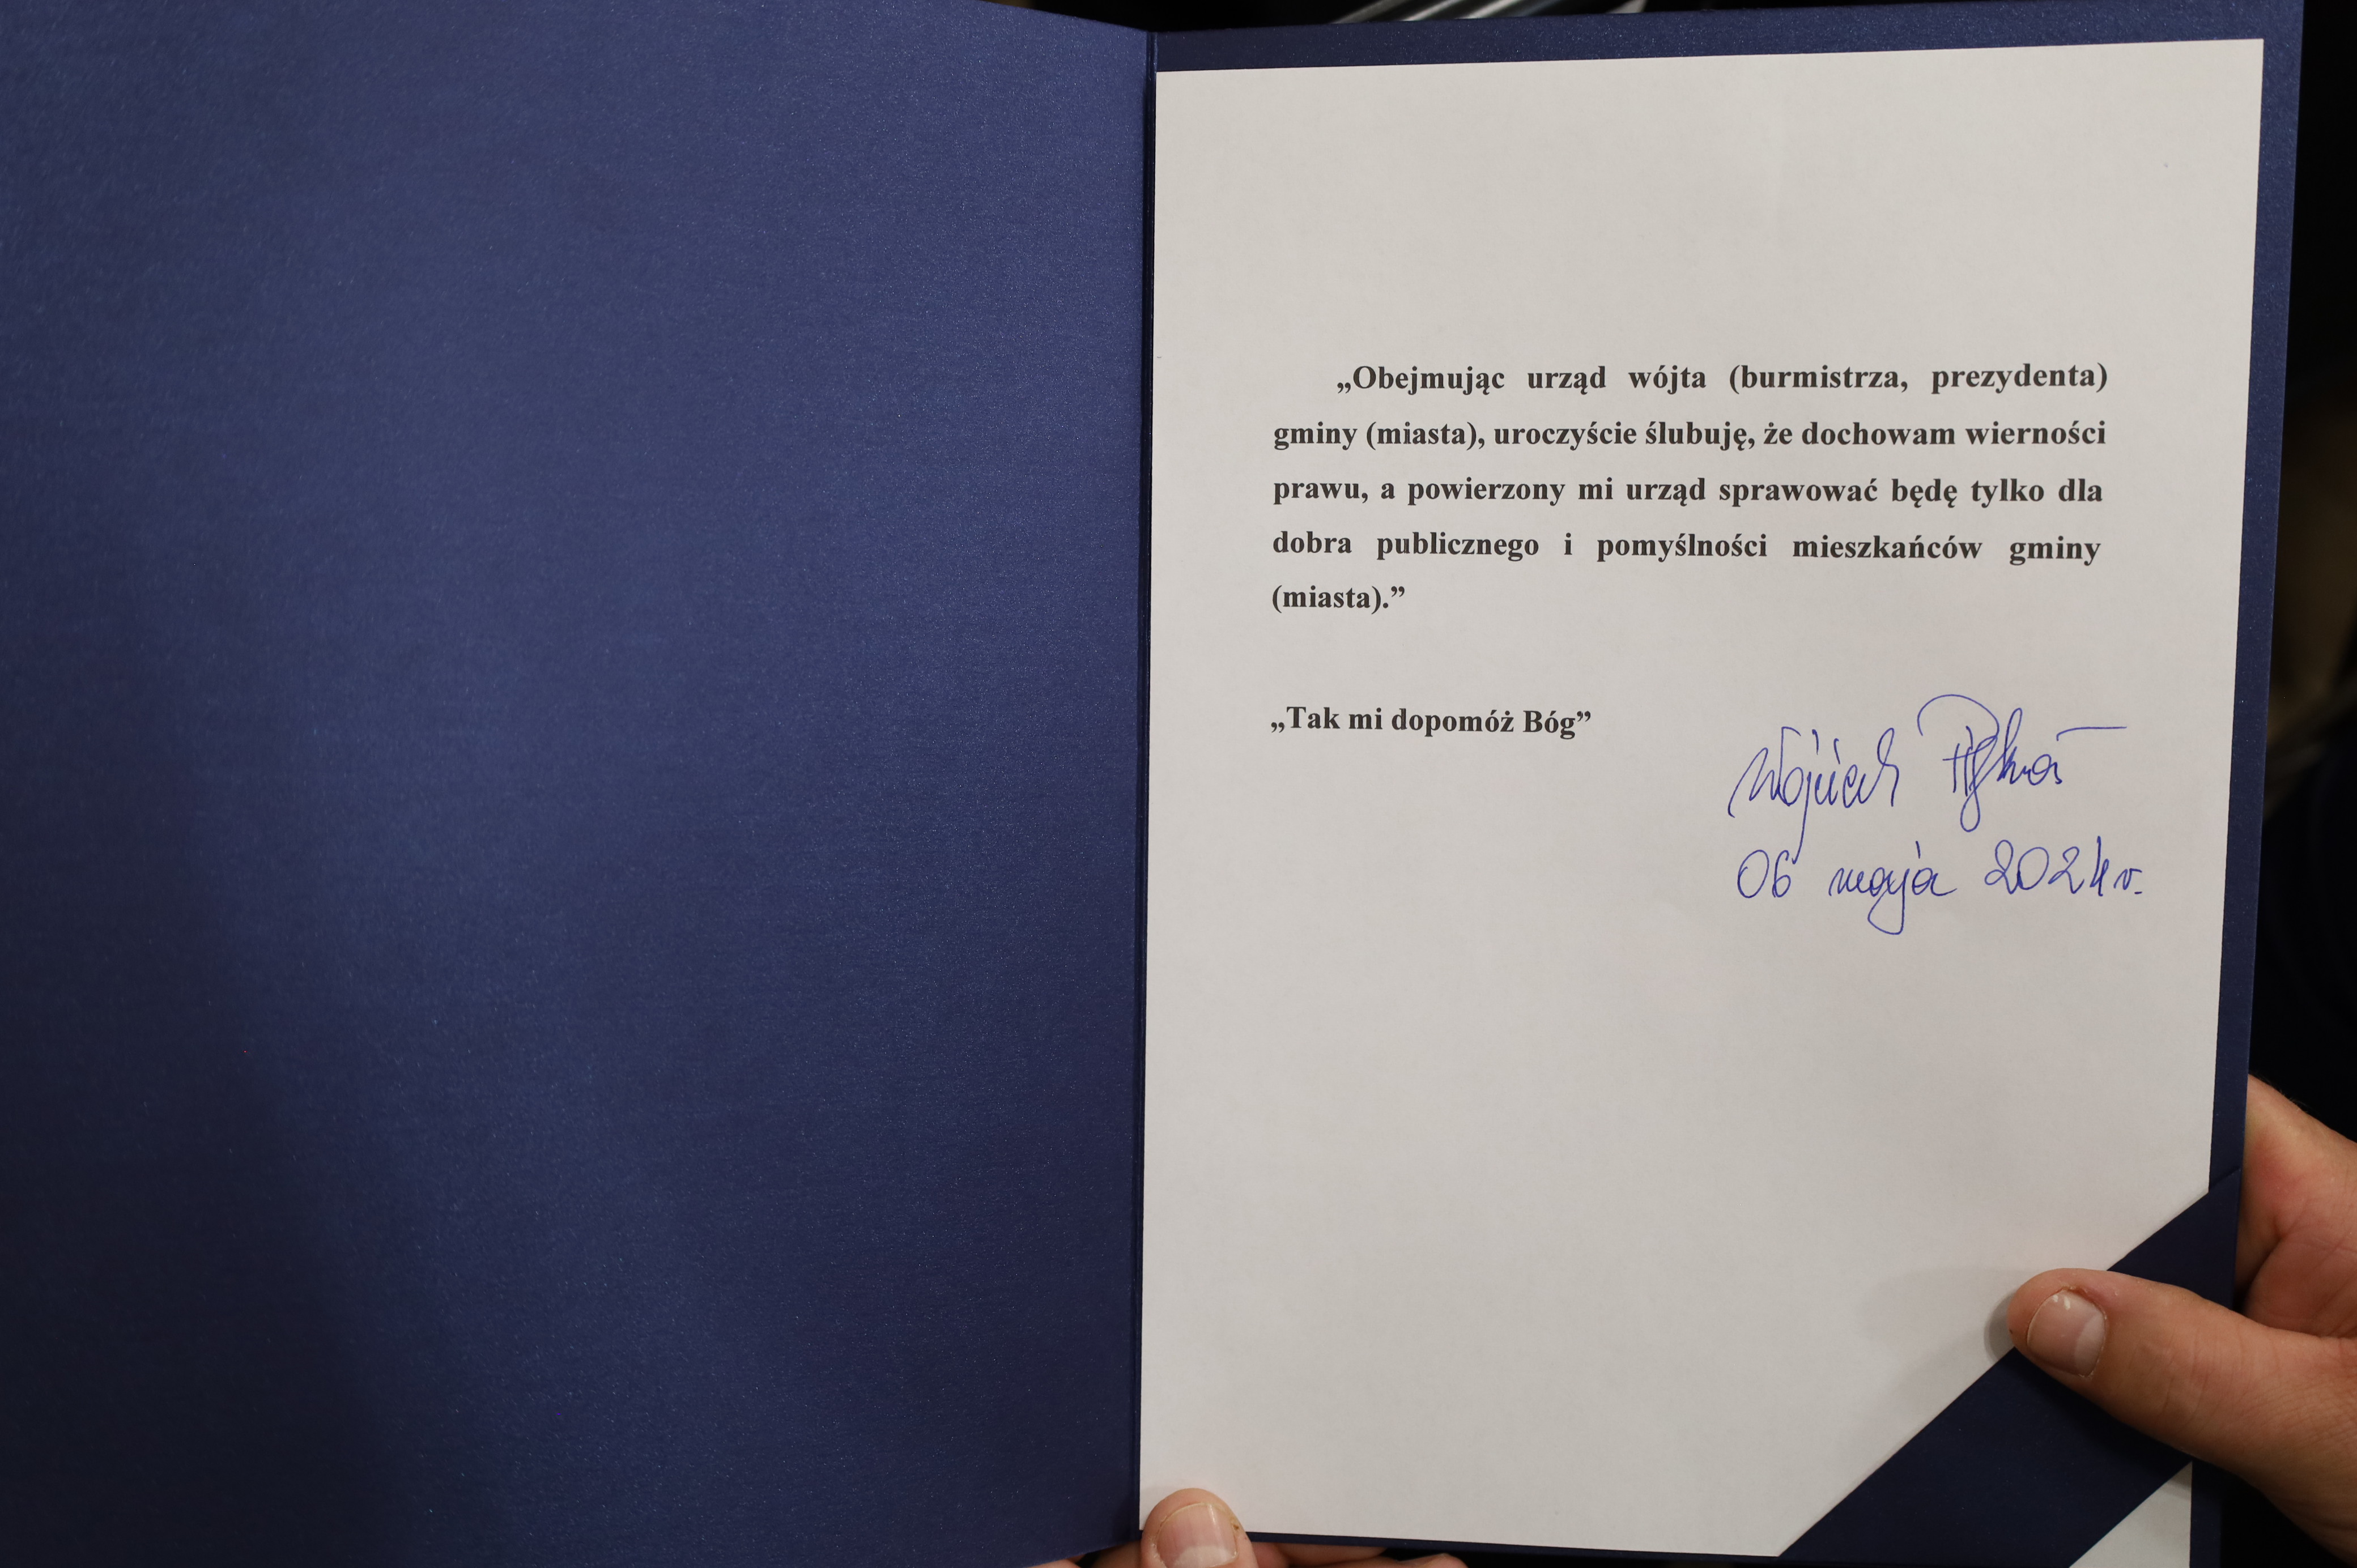 „Obejmując urząd wójta (burmistrza, prezydenta)
gminy (miasta), uroczyście ślubuję, że dochowam wierności
prawu, a powierzony mi urząd sprawować będę tylko dla
dobra publicznego i pomyślności mieszkańców gminy
(miasta).”
„Tak mi dopomóż Bóg”
Wojciech
06 maja 2024 r.